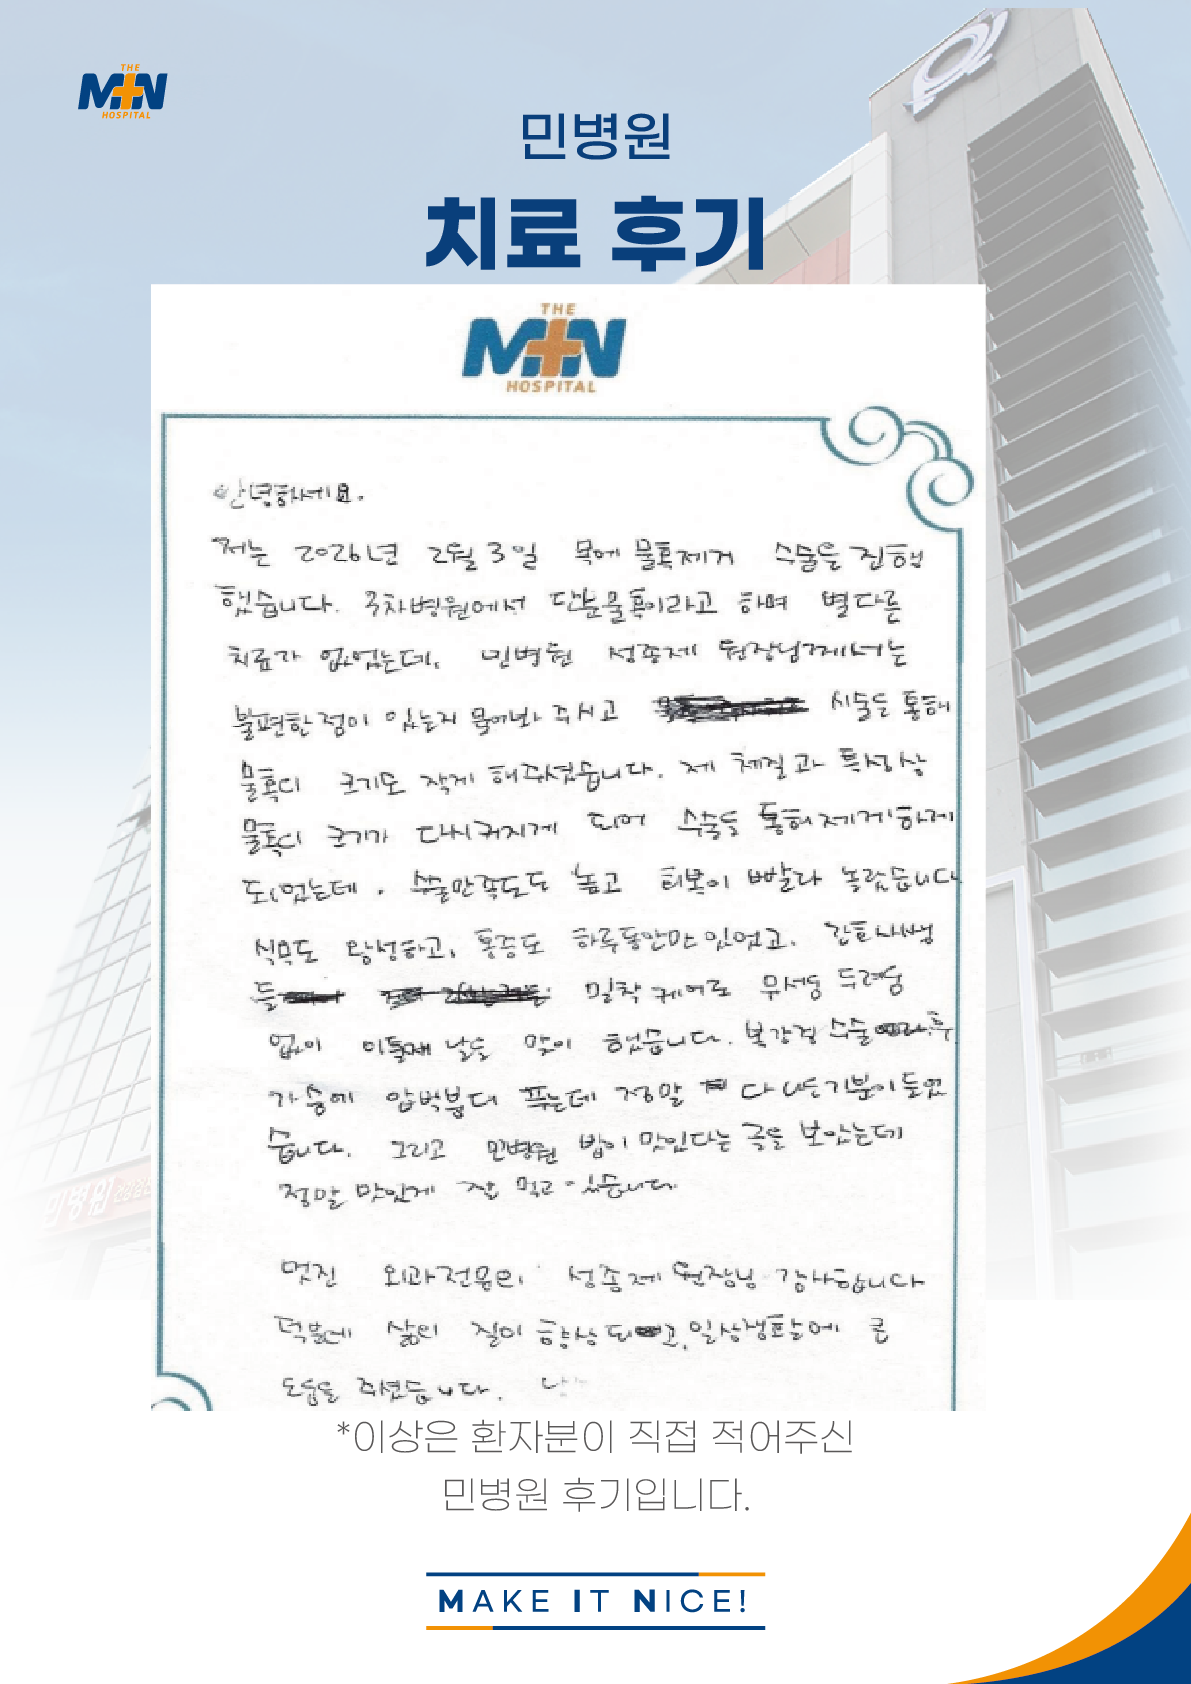 THE
MIN
HOSPITAL
민병원
치료 후기
THE
MIN
HOSPITAL
안녕하세요.
저는 2026년 2월 3일 목에 물혹제거 수술을 진행
했습니다. 주차병원에서 단순물혹이라고 하며 별다른
치료가 없었는데, 민병원 성종제 원장님께서는
불편한 점이 있는지 물어봐 주시고 시술을 통해
물혹의 크기도 작게 해주셨습니다. 제 체질과 특성상
물혹의 크기가 다시커지게 되어 수술을 통해제거하게
되었는데, 수술만족도도 높고 회복이 빨라 놀랐습니다
식욕도 왕성하고, 통증도 하루동안만 있었고, 간호사쌤
들 밀착 케어로 무서움 두려움
없이 이틀째 날을 맞이 했습니다. 복강경 수술 후
가슴에 압박붕대 푸는데 정말 다 낫는기분이 들었
습니다. 그리고 민병원 밥이 맛있다는 글을 보았는데
정말 맛있게 잘 먹고 있습니다.
멋진 외과전문의 성종제 원장님 감사합니다
덕분에 삶의 질이 향상되고, 일상생활에 큰
도움을 주셨습니다.
*이상은 환자분이 직접 적어주신
민병원 후기입니다.
MAKE IT NICE!
민병원